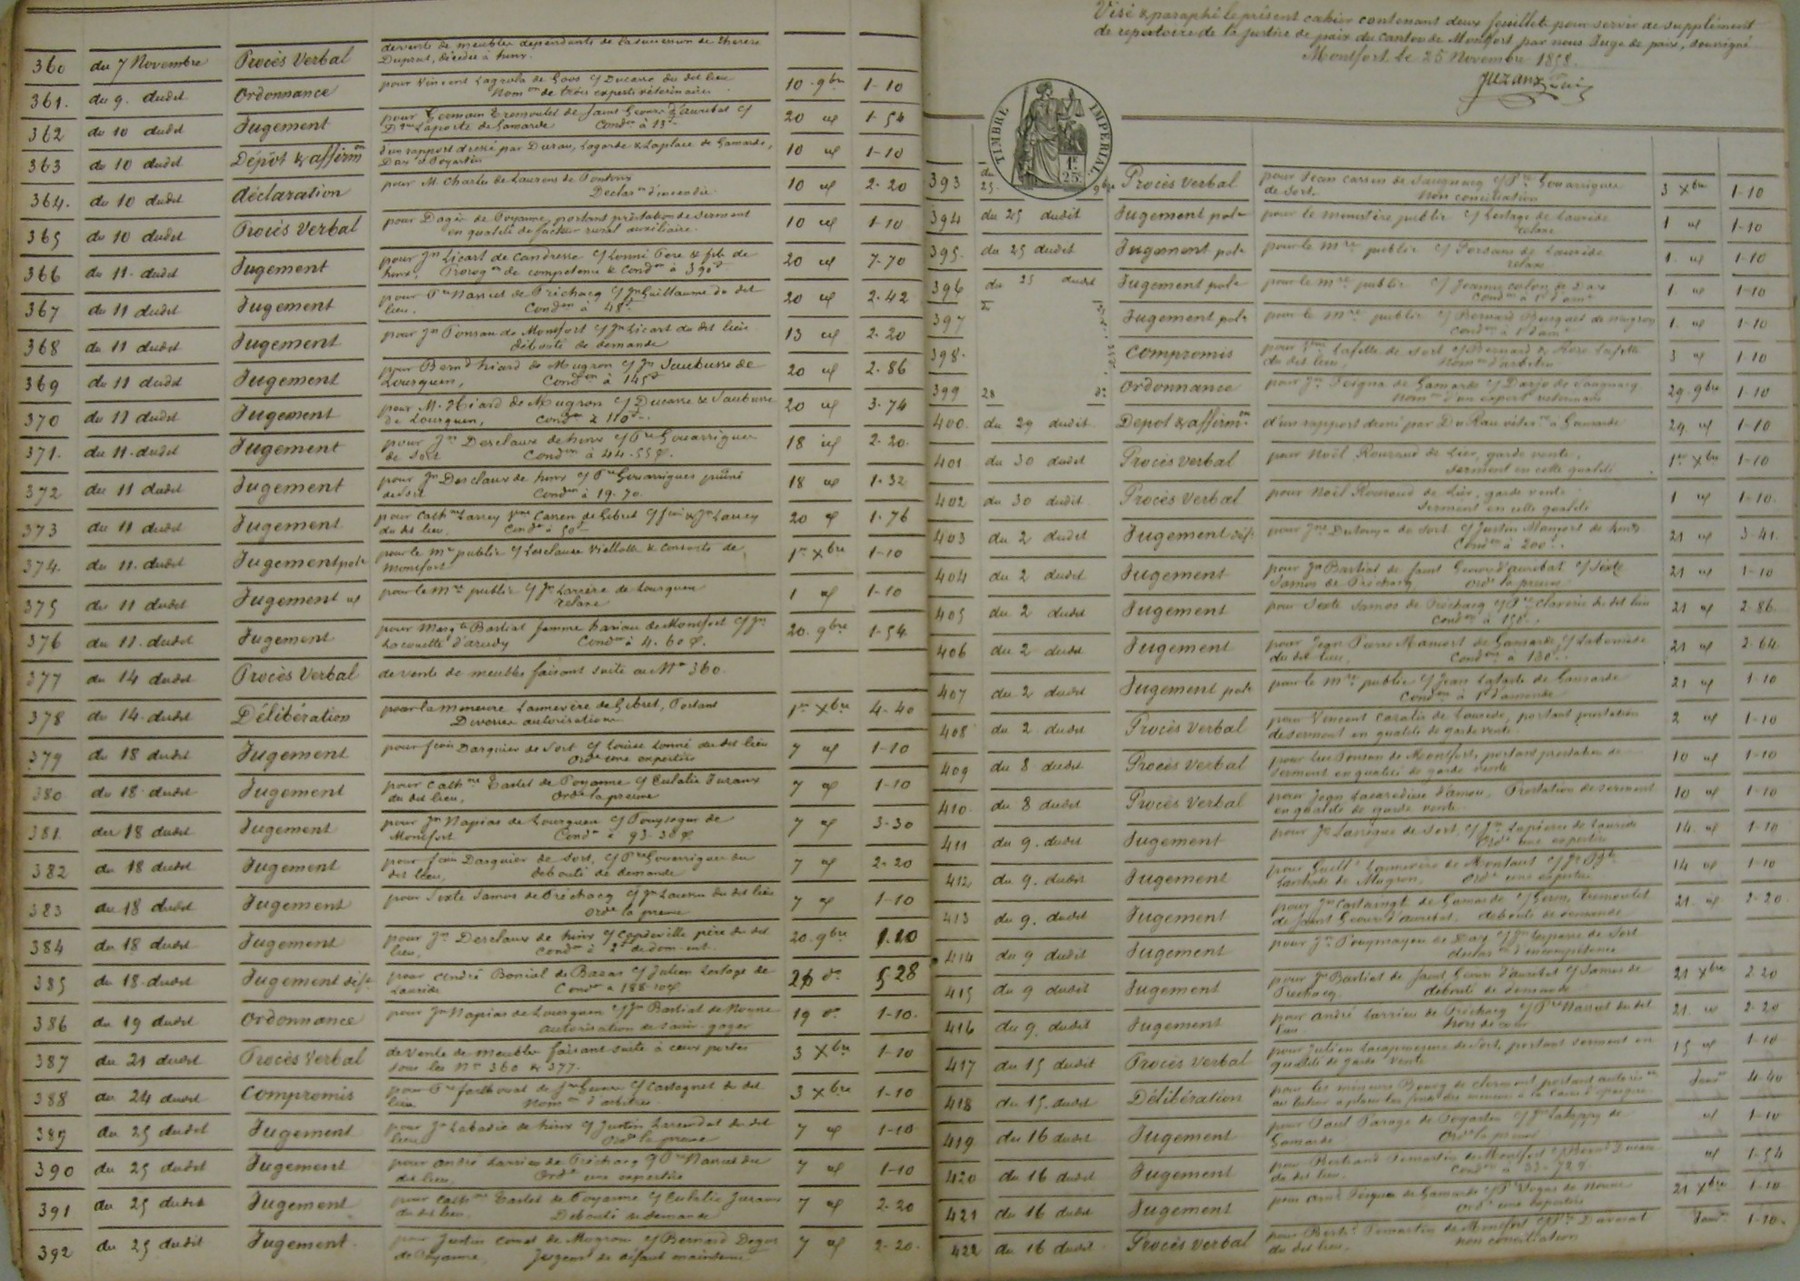 360 du 7 Novembre Procès Verbal de vente de meubles dependants de la succession de Therese
Duprat, décédée à hinx.
361. du 9. dudit Ordonnance pour Vincent Lagrola de Goos c/ Ducasse du dit lieu 10 9bre 1-10
Nomon de trois experts véterinaires
362 du 10 dudit Jugement pour Germain Tremoulet de Saint Geours d'auribat c/ 20 id 1-54
Laporte de Gamarde Condon à 13
363 du 10 dudit Dépôt & affirmon d'un rapport dressé par Durau, Lagarde & Laplace de Gamarde, 10 id 1-10
Dax & Poyartin
364. du 10 dudit déclaration pour M. Charles de Laurens de Pontonx 10 id 2-20
Declaron d'incendie
365 du 10 dudit Procès Verbal pour Dagès de Poyanne, portant préstation de serment 10 id 1-10
en qualité de facteur rural auxiliaire.
366 du 11. dudit Jugement pour Jn Licart de Candresse c/ Lonné Pere & fils de 20 id 7-70
hinx, Prorogon de competence & Condon à 390
367 du 11 dudit Jugement pour Pre Narciet de Préchacq c/ Jn Guillaume du dit 20 id 2-42
lieu. Condon à 48
368 du 11 dudit Jugement pour Jn Ponsan de Montfort c/ Jn Licart du dit lieu 13 id 2-20
débouté de demande
369 du 11 dudit Jugement pour Bernd hiard de Mugron c/ Jn Saubusse de 20 id 2-86
Lourquen, Condon à 145
370 du 11 dudit Jugement pour M. Hiard de Mugron c/ Ducasse & Saubusse 20 id 3-74
de Lourquen, Condon à 110
371. du 11. dudit Jugement pour Jn Desclaux de hinx c/ Pre Gouarrigues 18 id 2-20
de Sort Condon à 44.55
372 du 11 dudit Jugement pour Jn Desclaux de hinx c/ Pre Gouarrigues 18 id 1-32
de Sort Condon à 19.70
373 du 11 dudit Jugement pour Cathne Larrey Carrere de Gibret c/ & Jn Larrey 20 id 1-76
du dit lieu. Condon à 50
374. du 11. dudit Jugement pole pour le mre public c/ Lesclause Viellotte & Consorts de 1er Xbre 1-10
Montfort
375 du 11 dudit Jugement id pour le mre public c/ Jn Larrère de Lourquen 1 id 1-10
relaxe
376 du 11. dudit Jugement pour Margte Bastiat femme Dariau de Montfort c/ Jn 20. 9bre 1-54
d'arudy Condon à 4.60
377 du 14 dudit Procès Verbal de vente de meubles faisant suite au No 360
378 du 14. dudit Délibération pour la mineure Lannevère de Gibret, Portant 1er Xbre 4-40
Diverses autorisations
379 du 18 dudit Jugement pour fcois Darquier de Sort c/ Louise Lonné du dit lieu 7 id 1-10
Orde une expertise
380 du 18. dudit Jugement pour Cathne Tastet de Poyanne c/ Eulalie Juzanx 7 id 1-10
du dit lieu, Orde la preuve
381. du 18 dudit Jugement pour Jn Napias de Lourquen c/ Pouysegur de 7 id 3-30
Montfort Condon à 93.38
382 du 18 dudit Jugement pour fcois Darquier de Sort, c/ Pre Gouarrigues du 7 id 2-20
dit lieu, débouté de demande
383 du 18 dudit Jugement pour Sixte Samos de Préchacq c/ Jn Lacrau du dit lieu 7 id 1-10
Orde la preuve
384 du 18 dudit Jugement pour Jn Desclaux de hinx c/ Capdeville père du dit 20. 9bre 1.10
lieu, Condon à 2f de dom. int.
385 du 18. dudit Jugement déft pour André Bonial de Bazas c/ Julien Lestage de 26 do 5 28
Laurède Condon à 188.10
386 du 19 dudit Ordonnance pour Jn Napias de Lourquen c/ Jn Bastiat de Nousse 19 do 1-10.
autorisation de saisir-gager
387 du 21 dudit Procès Verbal de Vente de meubles faisant suite à ceux portés 3 Xbre 1-10
sous les Nos 360 & 377.
388 du 24 dudit Compromis pour de Jn c/ Castagnet du dit 3 Xbre 1-10
lieu Nomon d'arbitres
389 du 25 dudit Jugement pour Jn Labadie de hinx c/ Justin Larendat du dit 7 id 1-10
lieu Orde la preuve
390 du 25 dudit Jugement pour André Larrieu de Préchacq c/ Pre Narciet du 7 id 1-10
dit lieu, Orde une expertise
391 du 25 dudit Jugement pour Cathne Tastet de Poyanne c/ Eulalie Juzanx 7 id 2-20
du dit lieu. Débouté de demande
392 du 25 dudit Jugement pour Justin Comet de Mugron c/ Bernard Degos 7 id 2-20.
de Poyanne, Jugemt de défaut maintenu
Visé & paraphé le présent cahier contenant deux feuillets pour servir de supplément
de repertoire de la justice de paix du canton de Montfort par nous Juge de paix, soussigné
Montfort le 25 Novembre 1858.
Juzanx
TIMBRE IMPERIAL
1F 25
393 du 25. 9bre Procès Verbal pour Jean Carrere de c/ Pre Gouarrigues 3 Xbre 1-10
de Sort. Non conciliation
394 du 25 dudit Jugement pole pour le ministère public c/ Lestage de Laurède 1 id 1-10
relaxe
395. du 25 dudit Jugement pole pour le mre public c/ Persans de Laurède 1. id 1-10
relaxe
396 du 25 dudit Jugement pole pour le mre public c/ Jeanny colon à Dax 1. id 1-10
Condon à 1f d'amt
397 Jugement pole pour le mre public c/ Bernard Busquet de mugron 1. id 1-10
Condon à 1f d'amt
398. Compromis pour Lafitte de Sort c/ Bernard & Lafitte 3 id 1-10
du dit lieu, Nomon d'arbitre
399 28 do Ordonnance pour Jn de Gamarde c/ Darjo de 29. 9bre 1-10
Nomon d'un expert véterinaire
400. du 29 dudit Dépot & affirmon d'un rapport dressé par Du Rau véterre à Gamarde 29. id 1-10
401 du 30 dudit Procès Verbal pour Noël Roussaud de Lier, garde vente, 1er Xbre 1-10
serment en cette qualité
402 du 30 dudit Procès Verbal pour Noël Roussaud de Lier, garde vente 1 id 1-10.
Serment en cette qualité
403 du 2 dudit Jugement déft pour Dutouya de Sort c/ Justin Mamort de hinx 21 id 3-41.
Condon à 200
404 du 2 dudit Jugement pour Jn Bastiat de Saint Geours d'auribat c/ Sixte 21 id 1-10
Samos de Préchacq Orde la preuve
405 du 2 dudit Jugement pour Sixte Samos de Préchacq c/ Pre Claverie du dit lieu 21 id 2-86.
Condon à 158
406 du 2 dudit Jugement pour Jean Pierre Mamort de Gamarde c/ Labonnide 21 id 2-64
du dit lieu. Condon à 130
407 du 2 dudit Jugement pole pour le mre public c/ Jean Lafitte de Gamarde 21 id 1-10
Condon à 1f d'amende
408 du 2 dudit Procès Verbal pour Vincent Cazalis de Laurède, portant prestation 2 id 1-10
de serment en qualité de garde vente
409 du 8 dudit Procès Verbal pour Ponsan de Montfort, portant prestation de 10 id 1-10
Serment en qualité de garde vente
410. du 8 dudit Procès Verbal pour Jean Lacaredieu d'Amou, Prestation de serment 10 id 1-10
en qualité de garde vente
411 du 9. dudit Jugement pour Jn Larrigue de Sort, c/ Jn Lapierre de Laurède 14. id 1-10
Orde une expertise
412 du 9. dudit Jugement pour Guille Lannevère de Montaut c/ Jn Bte 14 id 1-10
de Mugron, Orde une expertise
413 du 9. dudit Jugement pour Jn Castaingt de Gamarde c/ Germ. Tremoulet 21. id 2-20.
de Saint Geours d'auribat, débouté de demande
414 du 9 dudit Jugement pour Jn Pouymayou de Dax c/ Jn Laporte de Sort
declaron d'incompétence
415 du 9 dudit Jugement pour Jn Bastiat de Saint Geours d'auribat c/ Samos de 21 Xbre 2-20
Préchacq débouté de demande
416 du 9. dudit Jugement pour André Larrieu de Préchacq c/ Pre Narciet du dit 21. id 2-20
lieu hors de cour
417 du 15 dudit Procès Verbal pour Julien de Sort, portant serment en 15 id 1-10
qualité de garde vente
418 du 15. dudit Délibération pour les mineurs Bourg de Clermont portant autoron Janvr 4-40
au tuteur à placer les fonds des mineurs à la caisse d'épargne
419 du 16 dudit Jugement pour Paul Farage de Poyartin c/ Jn de id 1-10
Gamarde Orde la preuve
420 du 16 dudit Jugement pour Bertrand Pomartin de Montfort c/ Bernd id 1-54
du dit lieu Condon à 33.72
421 du 16 dudit Jugement pour Arnd de Gamarde c/ Pre de Nousse 21 Xbre 1-10
Orde une expertise
422 du 16 dudit Procès Verbal pour Bertd Pomartin de Montfort c/ Daverat Janvr 1-10.
du dit lieu. non conciliation